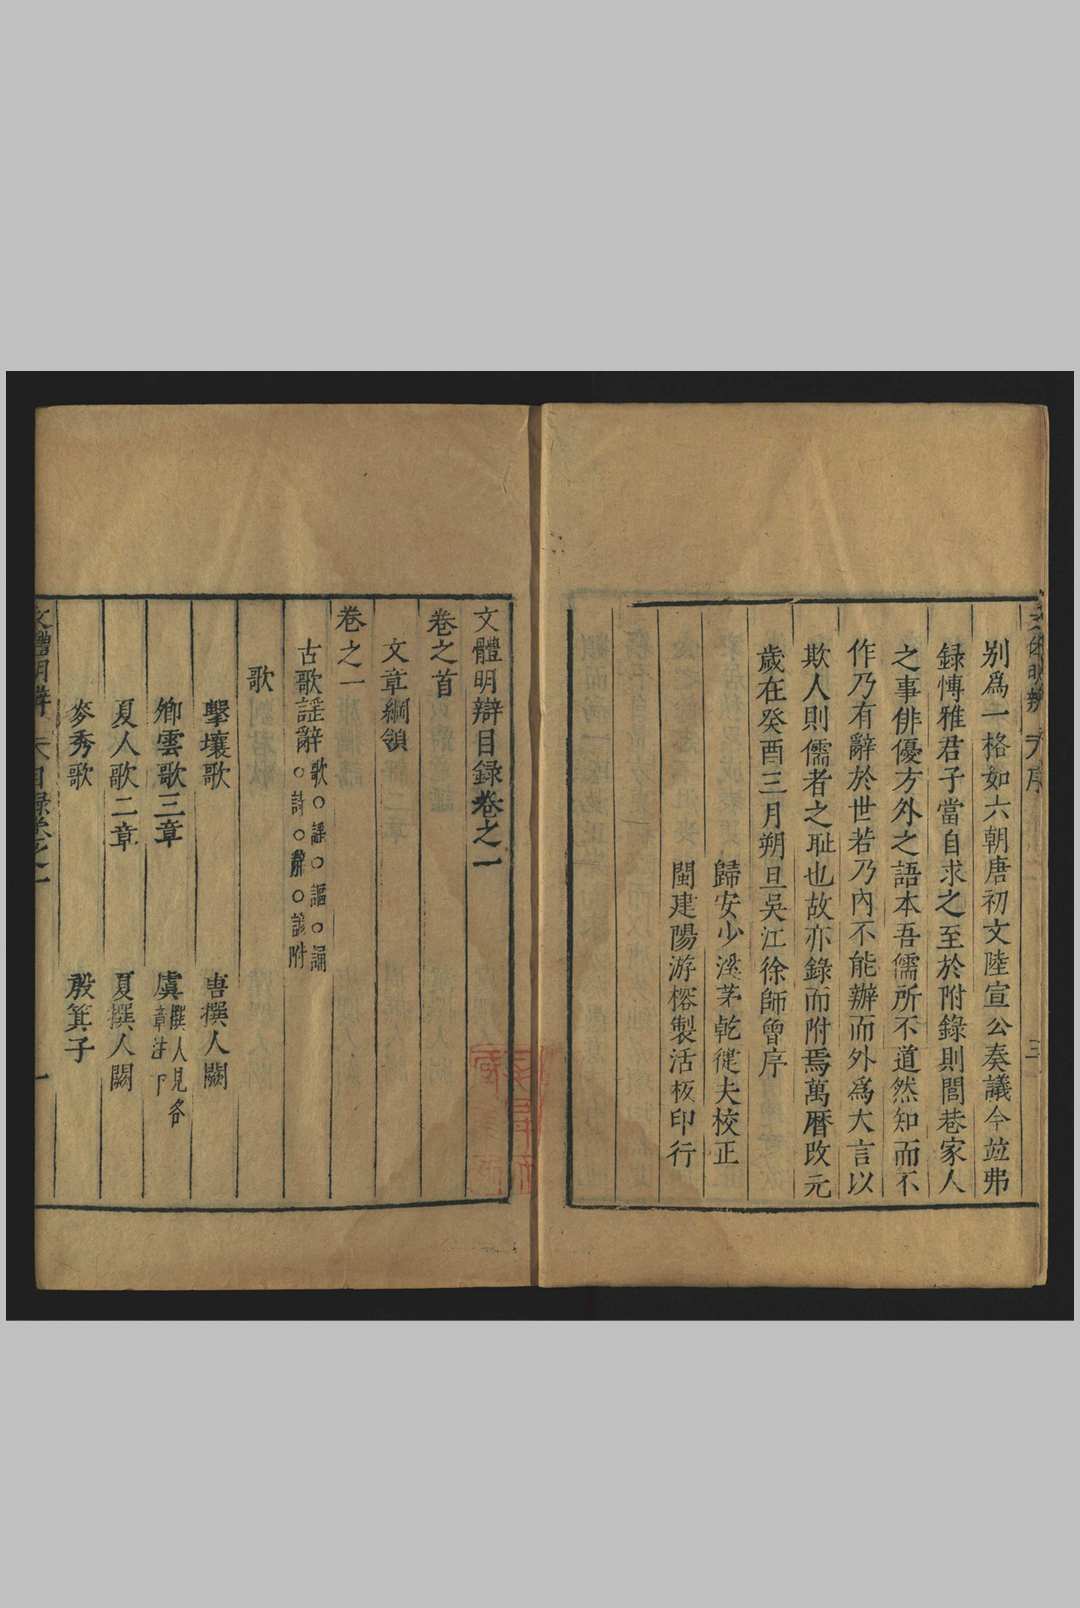 别為一格如六朝唐初文陸宣公奏議今竝弗
録愽雅君子當自求之至於附錄則閭巷家人
之事俳優方外之語本吾儒所不道然知而不
作乃有辭於世若乃內不能辦而外為大言以
欺人則儒者之耻也故亦錄而附焉萬曆改元
歲在癸酉三月朔旦吳江徐師曾序
歸安少溪茅乾健夫校正
閩建陽游榕製活板印行
文體明辯目録卷之一
卷之首
文章綱領
卷之一
古歌謡辭歌○謡○謳○誦○詩○辭○諺附
歌
擊壤歌 唐撰人闕
卿雲歌三章 虞撰人見各章注下
夏人歌二章 夏撰人闕
麥秀歌 殷箕子
文體明辯 目録卷之一 一